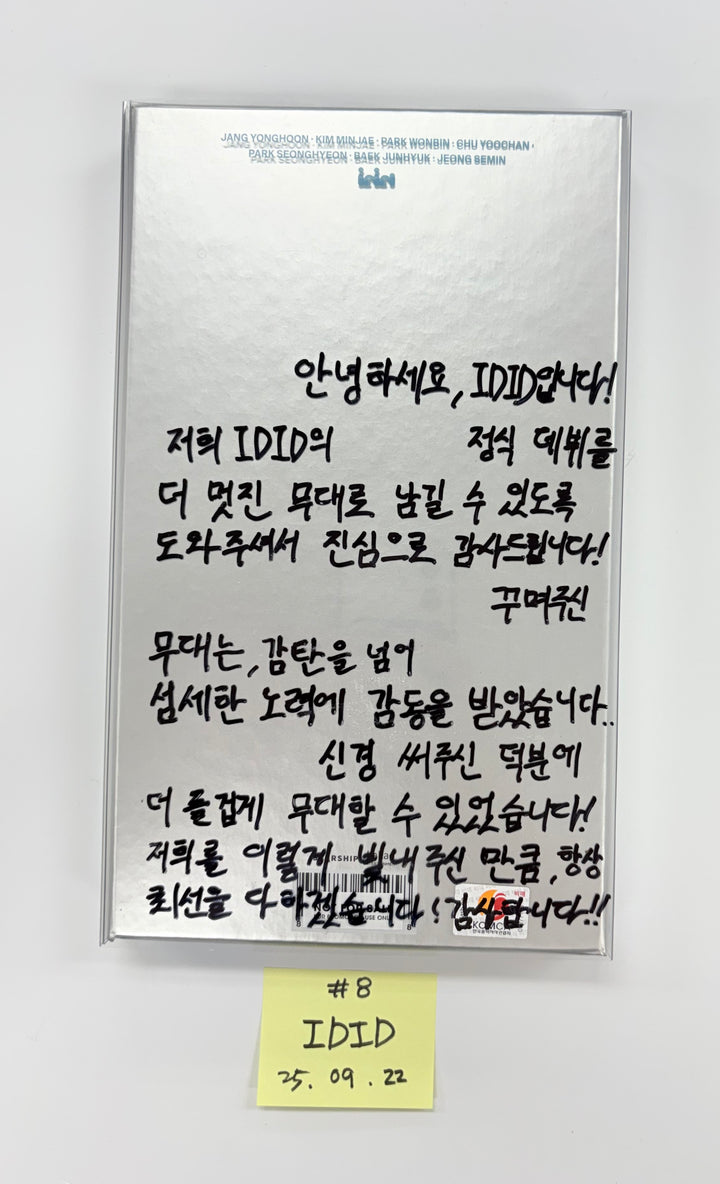 JANG YONGHOON · KIM MINJAE · PARK WONBIN · CHU YOOCHAN ·
PARK SEONGHYEON · BAEK JUNHYUK · JEONG SEMIN
안녕하세요, IDID입니다!
저희 IDID의 정식 데뷔를
더 멋진 무대로 남길 수 있도록
도와주셔서 진심으로 감사드립니다!
꾸며주신
무대는, 감탄을 넘어
섬세한 노력에 감동을 받았습니다..
신경 써주신 덕분에
더 즐겁게 무대할 수 있었습니다!
저희를 이렇게 빛내주신 만큼, 항상
최선을 다하겠습니다! 감사합니다!!
KOMCA
#8
IDID
25. 09. 22